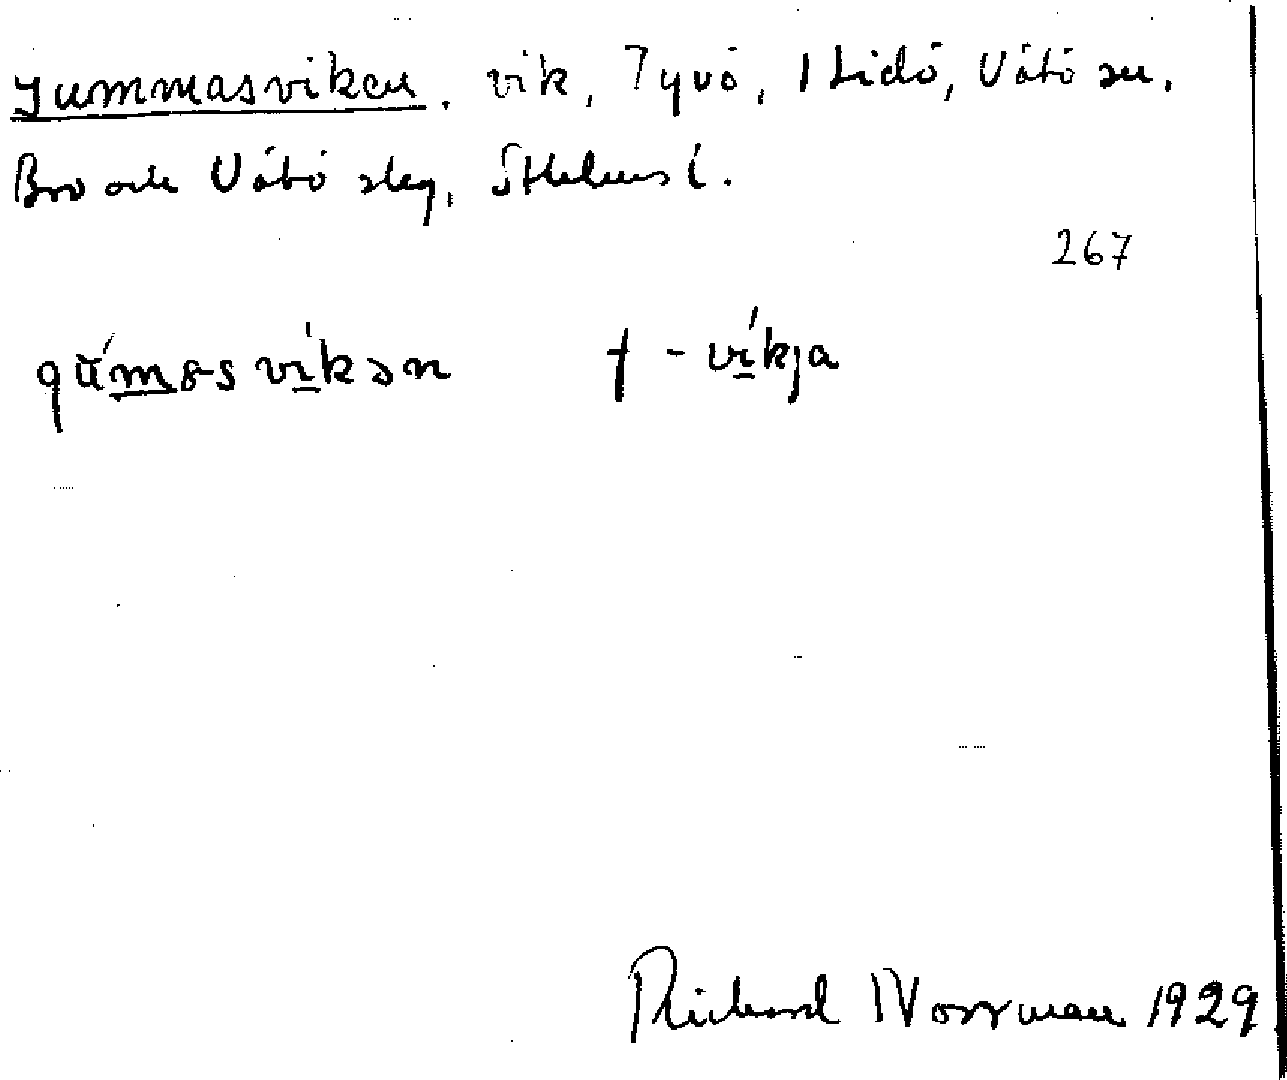 Gummasviken. vik, Tyvö, 1 Lidö, Vätö sn.
Bro och Vätö skg, Sthlms l.
267
gu̇́masvíkən † - víkja
Richard Norrman 1929